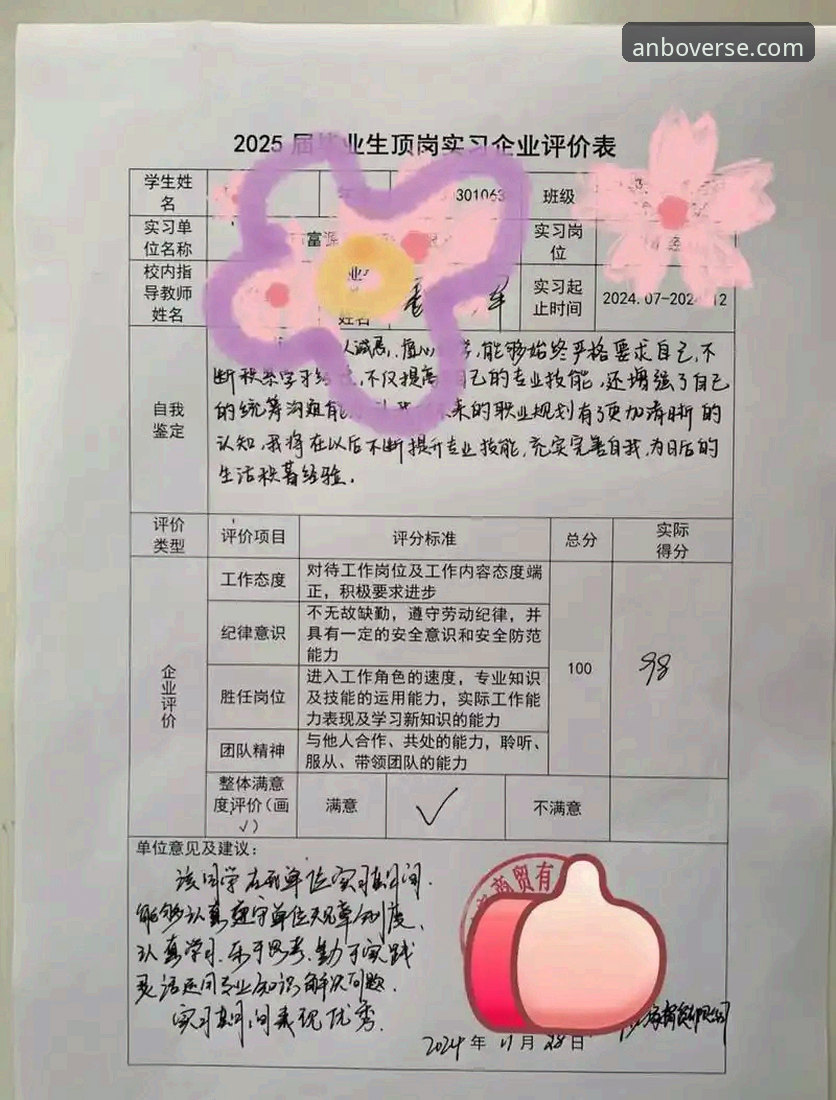 anboverse.com
2025 届毕业生顶岗实习企业评价表
学生姓名 301063 班级
实习单位名称 富源 实习岗位
校内指导教师姓名 业 姓名 实习起止时间 2024.07-202 12
自我鉴定
人诚恳、虚心 学,能够始终严格要求自己,不
断积累学习经 ,不仅提高 自己的专业技能,还增强了自己
的统筹沟通能 未来的职业规划有了更加清晰的
认知,我将在以后不断提升专业技能,充实完善自我,为日后的
生活积蓄经验。
评价类型 评价项目 评分标准 总分 实际得分
企业评价
工作态度 对待工作岗位及工作内容态度端
正,积极要求进步
纪律意识 不无故缺勤,遵守劳动纪律,并
具有一定的安全意识和安全防范
能力
100 98
胜任岗位 进入工作角色的速度,专业知识
及技能的运用能力,实际工作能
力表现及学习新知识的能力
团队精神 与他人合作、共处的能力,聆听、
服从、带领团队的能力
整体满意
度评价(画
√) 满意 ✓ 不满意
单位意见及建议:
该同学在我单位实习期间,
能够认真遵守单位规章制度,
认真学习、乐于思考、勤于实践
灵活运用专业知识解决问题.
实习期间表现优秀.
商贸有
有限公司
2024 年 11 月 28 日